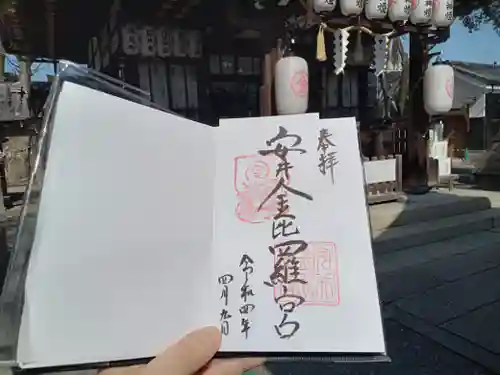 奉拝
安井金比羅宮
令和四年
四月九日